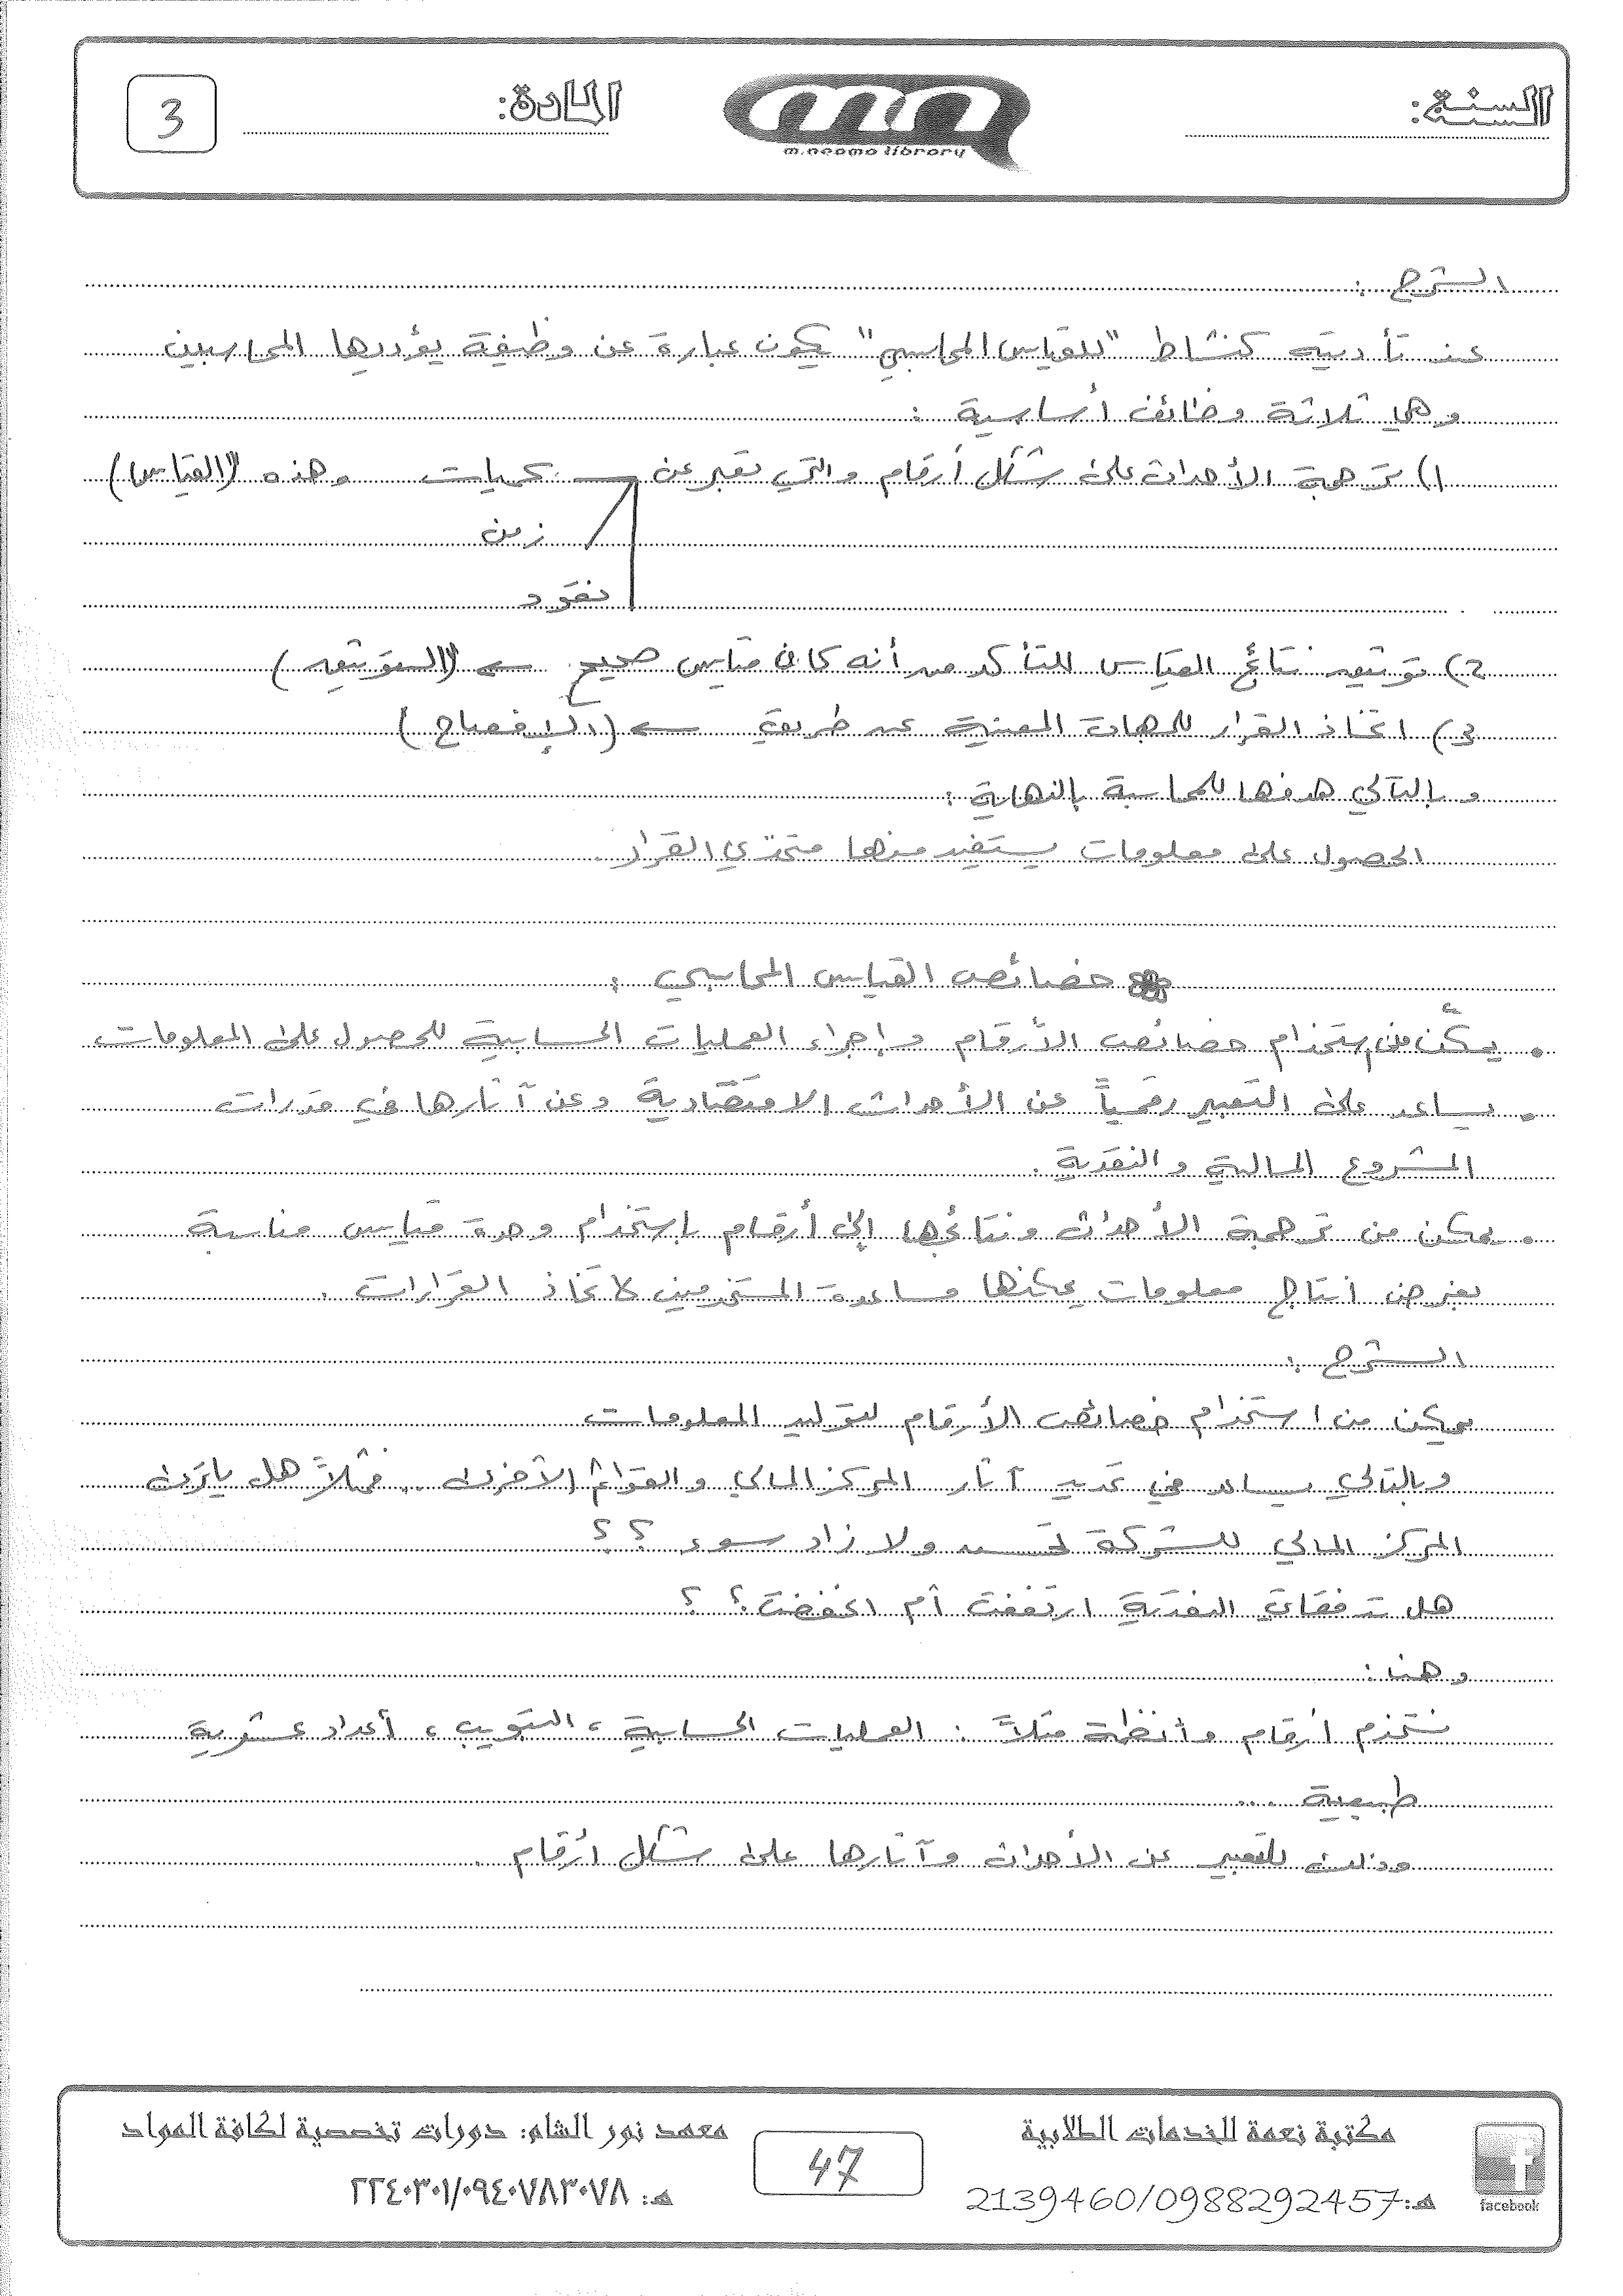 السنة:
m.neama library
المادة:
3
الشرح :
عند تأديته كنشاط "للقياس المحاسبي" يكون عبارة عن وظيفة يؤديها المحاسبين
وهي ثلاثة وظائف أساسية :
1) ترجمة الأحداث على شكل أرقام والتي تعبر عن كميات وهذه (القياس)
زمن
نقود
2) توثيق نتائج القياس للتأكد من أنه كان قياس صحيح ← (التوثيق)
3) اتخاذ القرار للجهات المعنية عن طريق ← (الإفصاح)
وبالتالي هدفها للمحاسبة بالنهاية :
الحصول على معلومات يستفيد منها متخذي القرار.
خصائص القياس المحاسبي :
• يمكّن من استخدام خصائص الأرقام وإجراء العمليات الحسابية للحصول على المعلومات
• يساعد على التعبير رقمياً عن الأحداث الاقتصادية وعن آثارها في قدرات
المشروع المالية والنقدية .
• يمكن من ترجمة الأحداث ونتائجها إلى أرقام باستخدام وحدة قياس مناسبة
بغرض انتاج معلومات يمكنها مساعدة المستخدمين لاتخاذ القرارات .
الشرح :
يمكن من استخدام خصائص الأرقام لتوليد المعلومات
وبالتالي يساعد في تحديد آثار المركز المالي والقوائم الأخرى .. فمثلاً هل يا ترى
المركز المالي للشركة تحسن ولا زاد سوء ؟؟
هل تدفقاتي النقدية ارتفعت أم انخفضت؟ ؟
وهنا :
نستخدم أرقام وأنظمة مثلاً : العمليات الحسابية ، التبويب ، أعداد عشرية
طبيعية ...
وذلك للتعبير عن الأحداث وآثارها على شكل أرقام .
مكتبة نعمة للخدمات الطلابية
هـ: 2139460/0988292457
facebook
47
معهد نور الشام: دورات تخصصية لكافة المواد
هـ: ٢٢٤٠٣٠١/٠٩٤٠٧٨٣٠٧٨